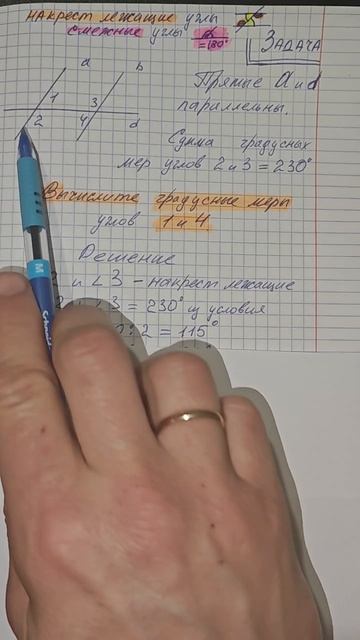 накрест лежащие углы
смежные углы
=180°
Задача
a
b
Прямые а и d
параллельны.
1
3
2
4
d
Сумма градусных
мер углов 2 и 3 = 230°
Вычислите градусные меры
углов 1 и 4
Решение
и ∠3 - накрест лежащие
3 = 230° из условия
: 2 = 115°